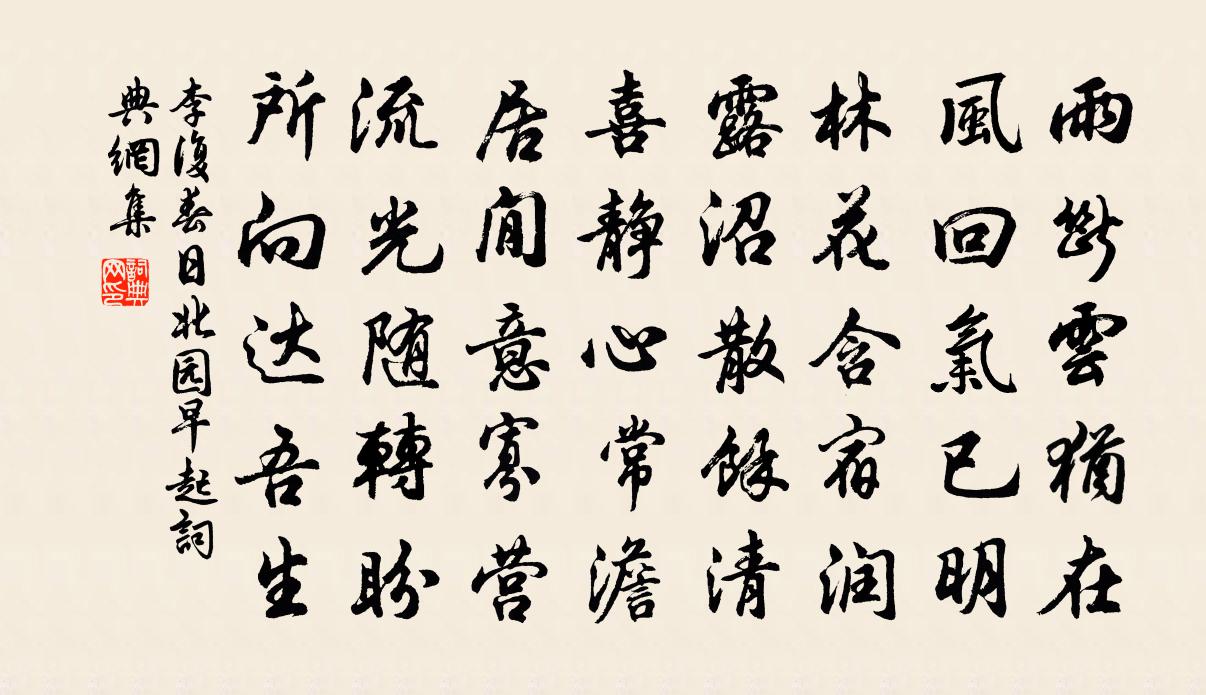 雨斷雲猶在
風回氣已明
林花含宿润
露沼散餘清
喜靜心常澹
居閒意寡营
流光随轉盼
所向达吾生
李復春日北园早起詞
典網集
詞典
网印